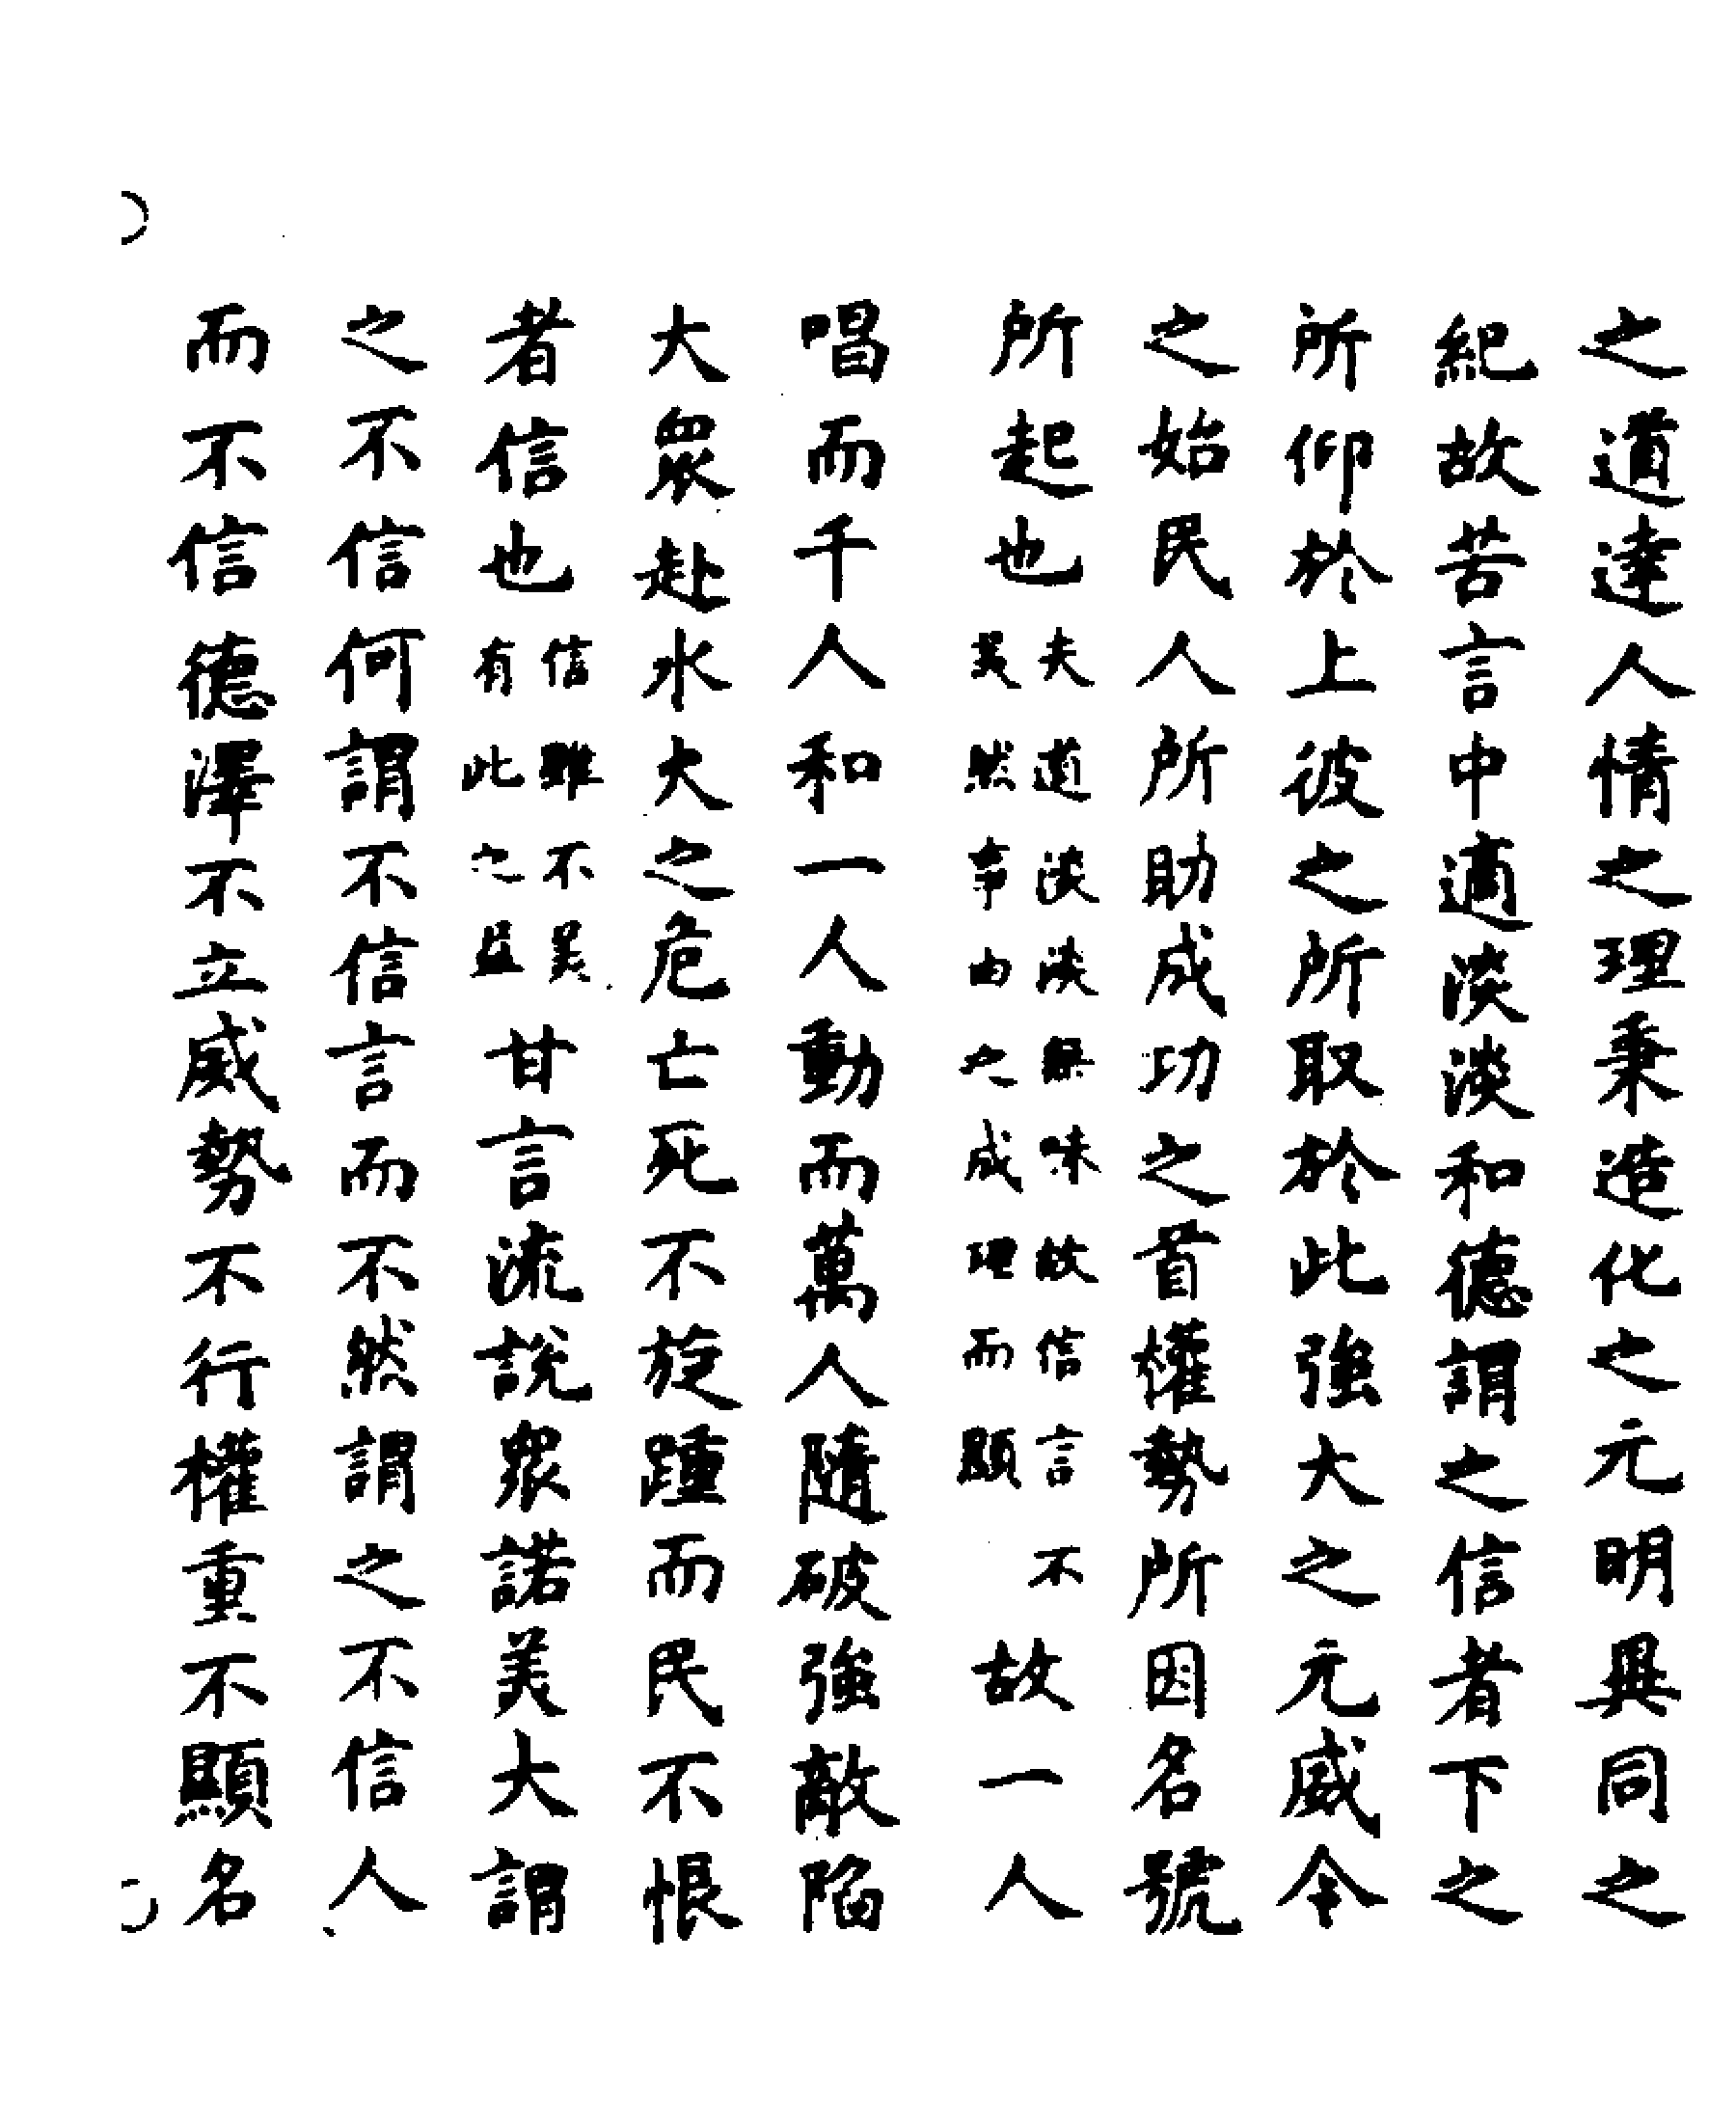 之道達人情之理秉造化之元明異同之
紀故苦言中適淡淡和德謂之信者下之
所仰於上彼之所取於此強大之元威令
之始民人所助成功之首權勢所因名號
所起也夫道淡淡無味故信言不美然事由之成理而顯故一人
唱而千人和一人動而萬人隨破強敵陷
大眾赴水大之危亡死不旋踵而民不恨
者信也信雖不美有此之益甘言流說眾諾美大謂
之不信何謂不信言而不然謂之不信人
而不信德澤不立威勢不行權重不顯名